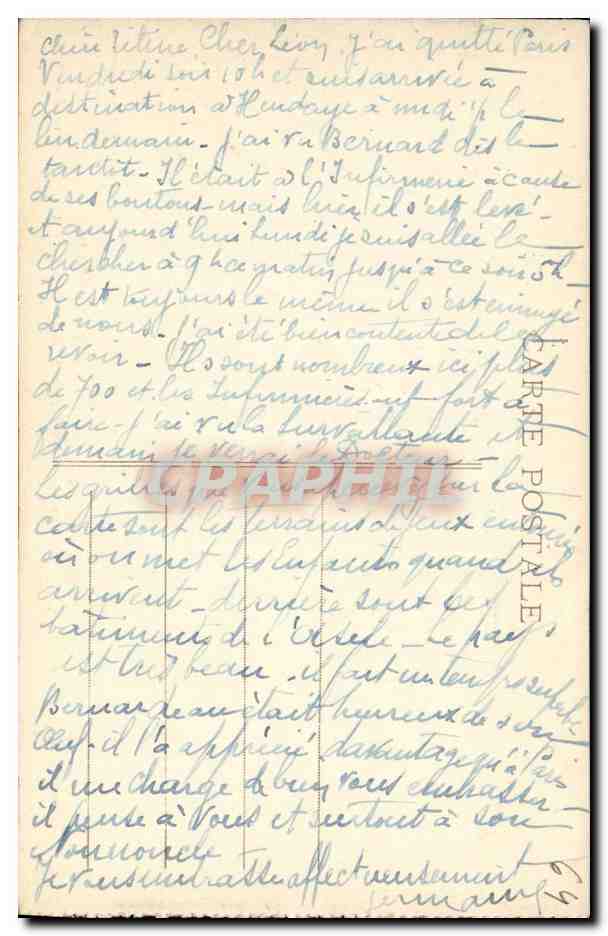 Cher Léon j'ai quitté Paris
Vendredi soir 10h et suis arrivée à
destination d'Hendaye à midi ½ le
lendemain - J'ai vu Bernard dès le
tantôt - Il était à l'Infirmerie à cause
de ses boutons mais hier il s'est levé -
et aujourd'hui lundi je suis allée le
chercher à 9h ce matin jusqu'à ce soir 5h -
Il est toujours le même il s'est ennuyé
de nous. J'ai été bien contente de le
revoir - Ils sont nombreux ici plus
de 700 et les Infirmières ont fort à
faire - j'ai vu la Surveillante et
demain je verrai le Docteur -
Les que sur la
carte sont les terrains de jeux
où on met les Enfants quand ils
arrivent - derrière sont les
bâtiments de l' - Le pays
est très beau - il fait un temps superbe
Bernard était heureux de son
il l'a apprécié davantage qu'à Paris
il me charge de bien vous embrasser -
il pense à vous et surtout à son
Nononcle
Je vous embrasse affectueusement
Germaine
64
CARTE POSTALE
CPARPHIL